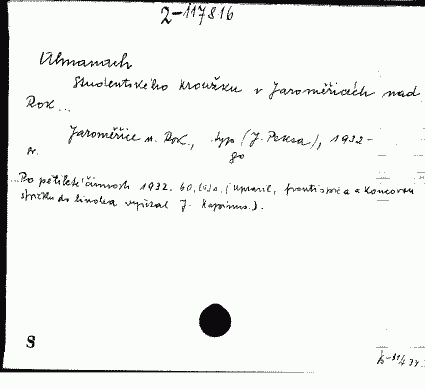 2-117816
Almanach
Studentského kroužku v Jaroměřicích nad
Rok...
Jaroměřice n. Rok., typ (J. Peksa), 1932-
8°
Po pětileté činnosti 1932. 60, (upravil, frontispice a koncovou
do linolea vyřezal J.
S